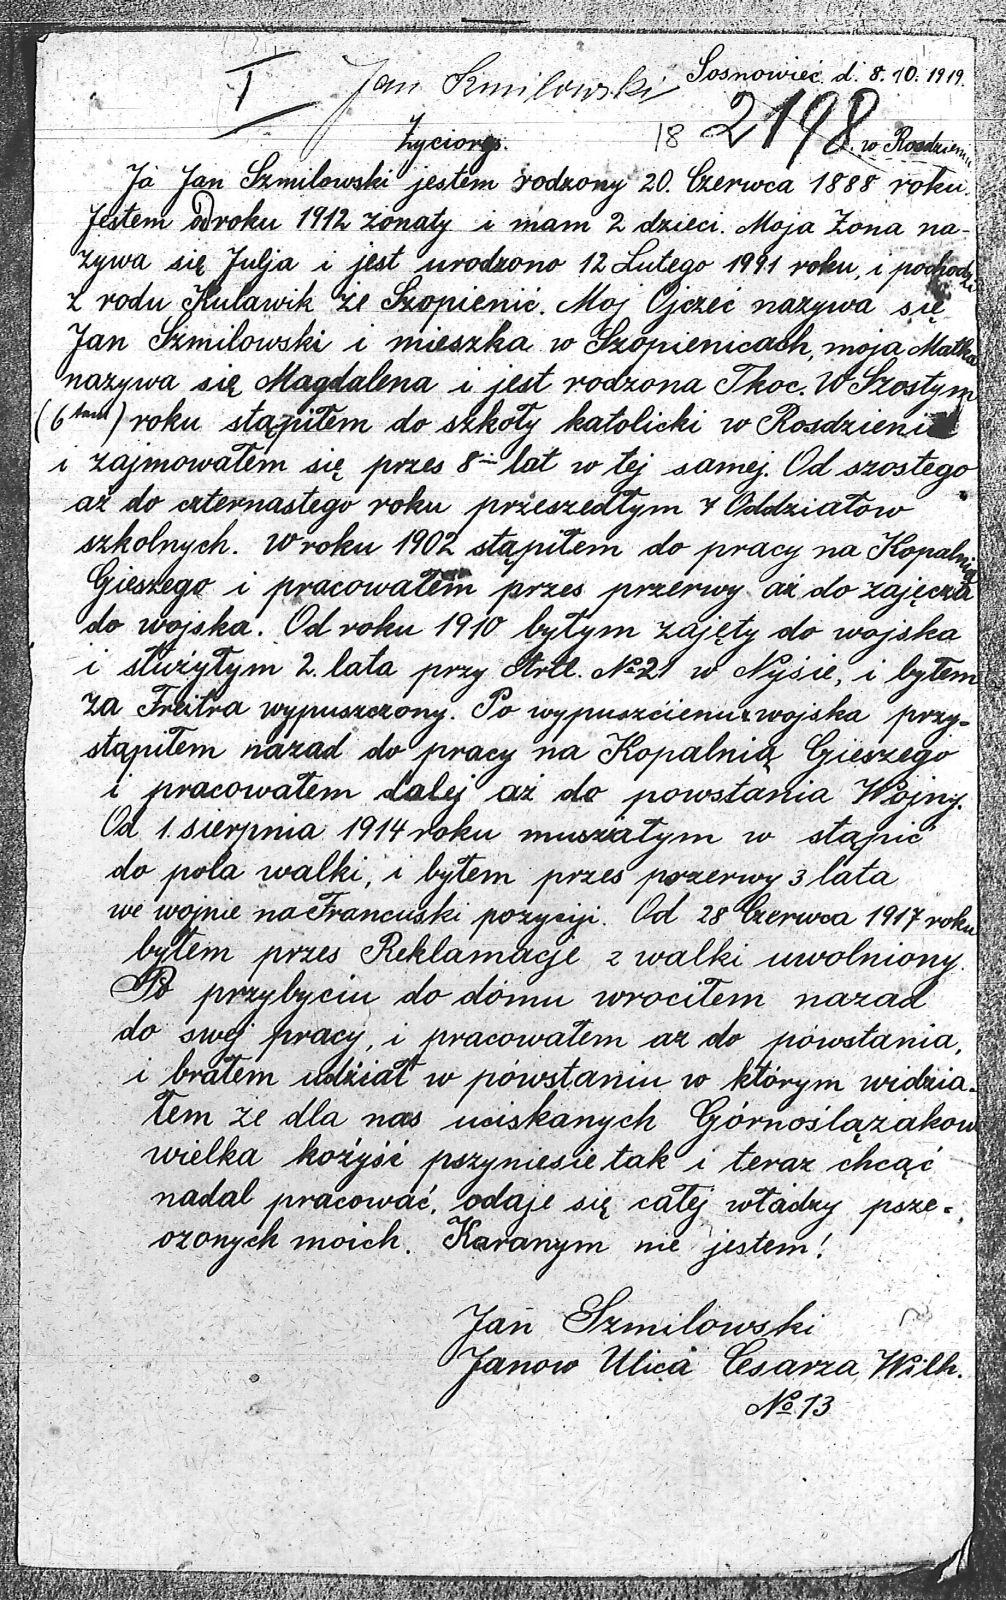 I Jan Szmilowski Sosnowiec d. 8.10.1919.
18 2198
Życiorys. w Rosdzieniu
Ja Jan Szmilowski jestem rodzony 20. Czerwca 1888 roku.
Jestem od roku 1912 zonaty i mam 2 dzieci. Moja Zona na-
zywa się Julja i jest urodzono 12 Lutego 1991 roku, i pochodzi
z rodu Kulawik ze Szopienic. Moj Ojczec nazywa się
Jan Szmilowski i mieszka w Szopienicach, moja Matka
nazywa się Magdalena i jest rodzona Tkoc. W Szostym
(6 tem) roku stąpiłem do szkoły katolicki w Rosdzieniu
i zajmowałem się przes 8 lat w tej samej. Od szostego
aż do czternastego roku przeszedłym 7 Oddziałow
szkolnych. W roku 1902 stąpiłem do pracy na Kopalnią
Gieszego i pracowałem przes przerwy aż do zajęcza
do wojska. Od roku 1910 byłym zajęty do wojska
i służyłym 2. lata przy Artl. No 21 w Nysie, i byłem
za Freitra wypuszczony. Po wypuszcieniu z wojska przy-
stąpiłem nazad do pracy na Kopalnią Gieszego
i pracowałem dalej aż do powstania Wojny.
Od 1. sierpnia 1914 roku musiałym w stąpić
do pola walki, i byłem przes przerwy 3 lata
we wojnie na Francuski pozyciji. Od 28 Czerwca 1917 roku
byłem przes Reklamacje z walki uwolniony.
Po przybyciu do domu wrociłem nazad
do swej pracy, i pracowałem aż do powstania,
i brałem udział w powstaniu w którym widzia-
łem ze dla nas uciskanych Górnoślązakow
wielka kożyść pszyniesie tak i teraz chcąć
nadal pracować, odaje się całej władzy psze-
ozonych moich. Karanym nie jestem!
Jan Szmilowski
Janow Ulica Cesarza Wilh.
No 13